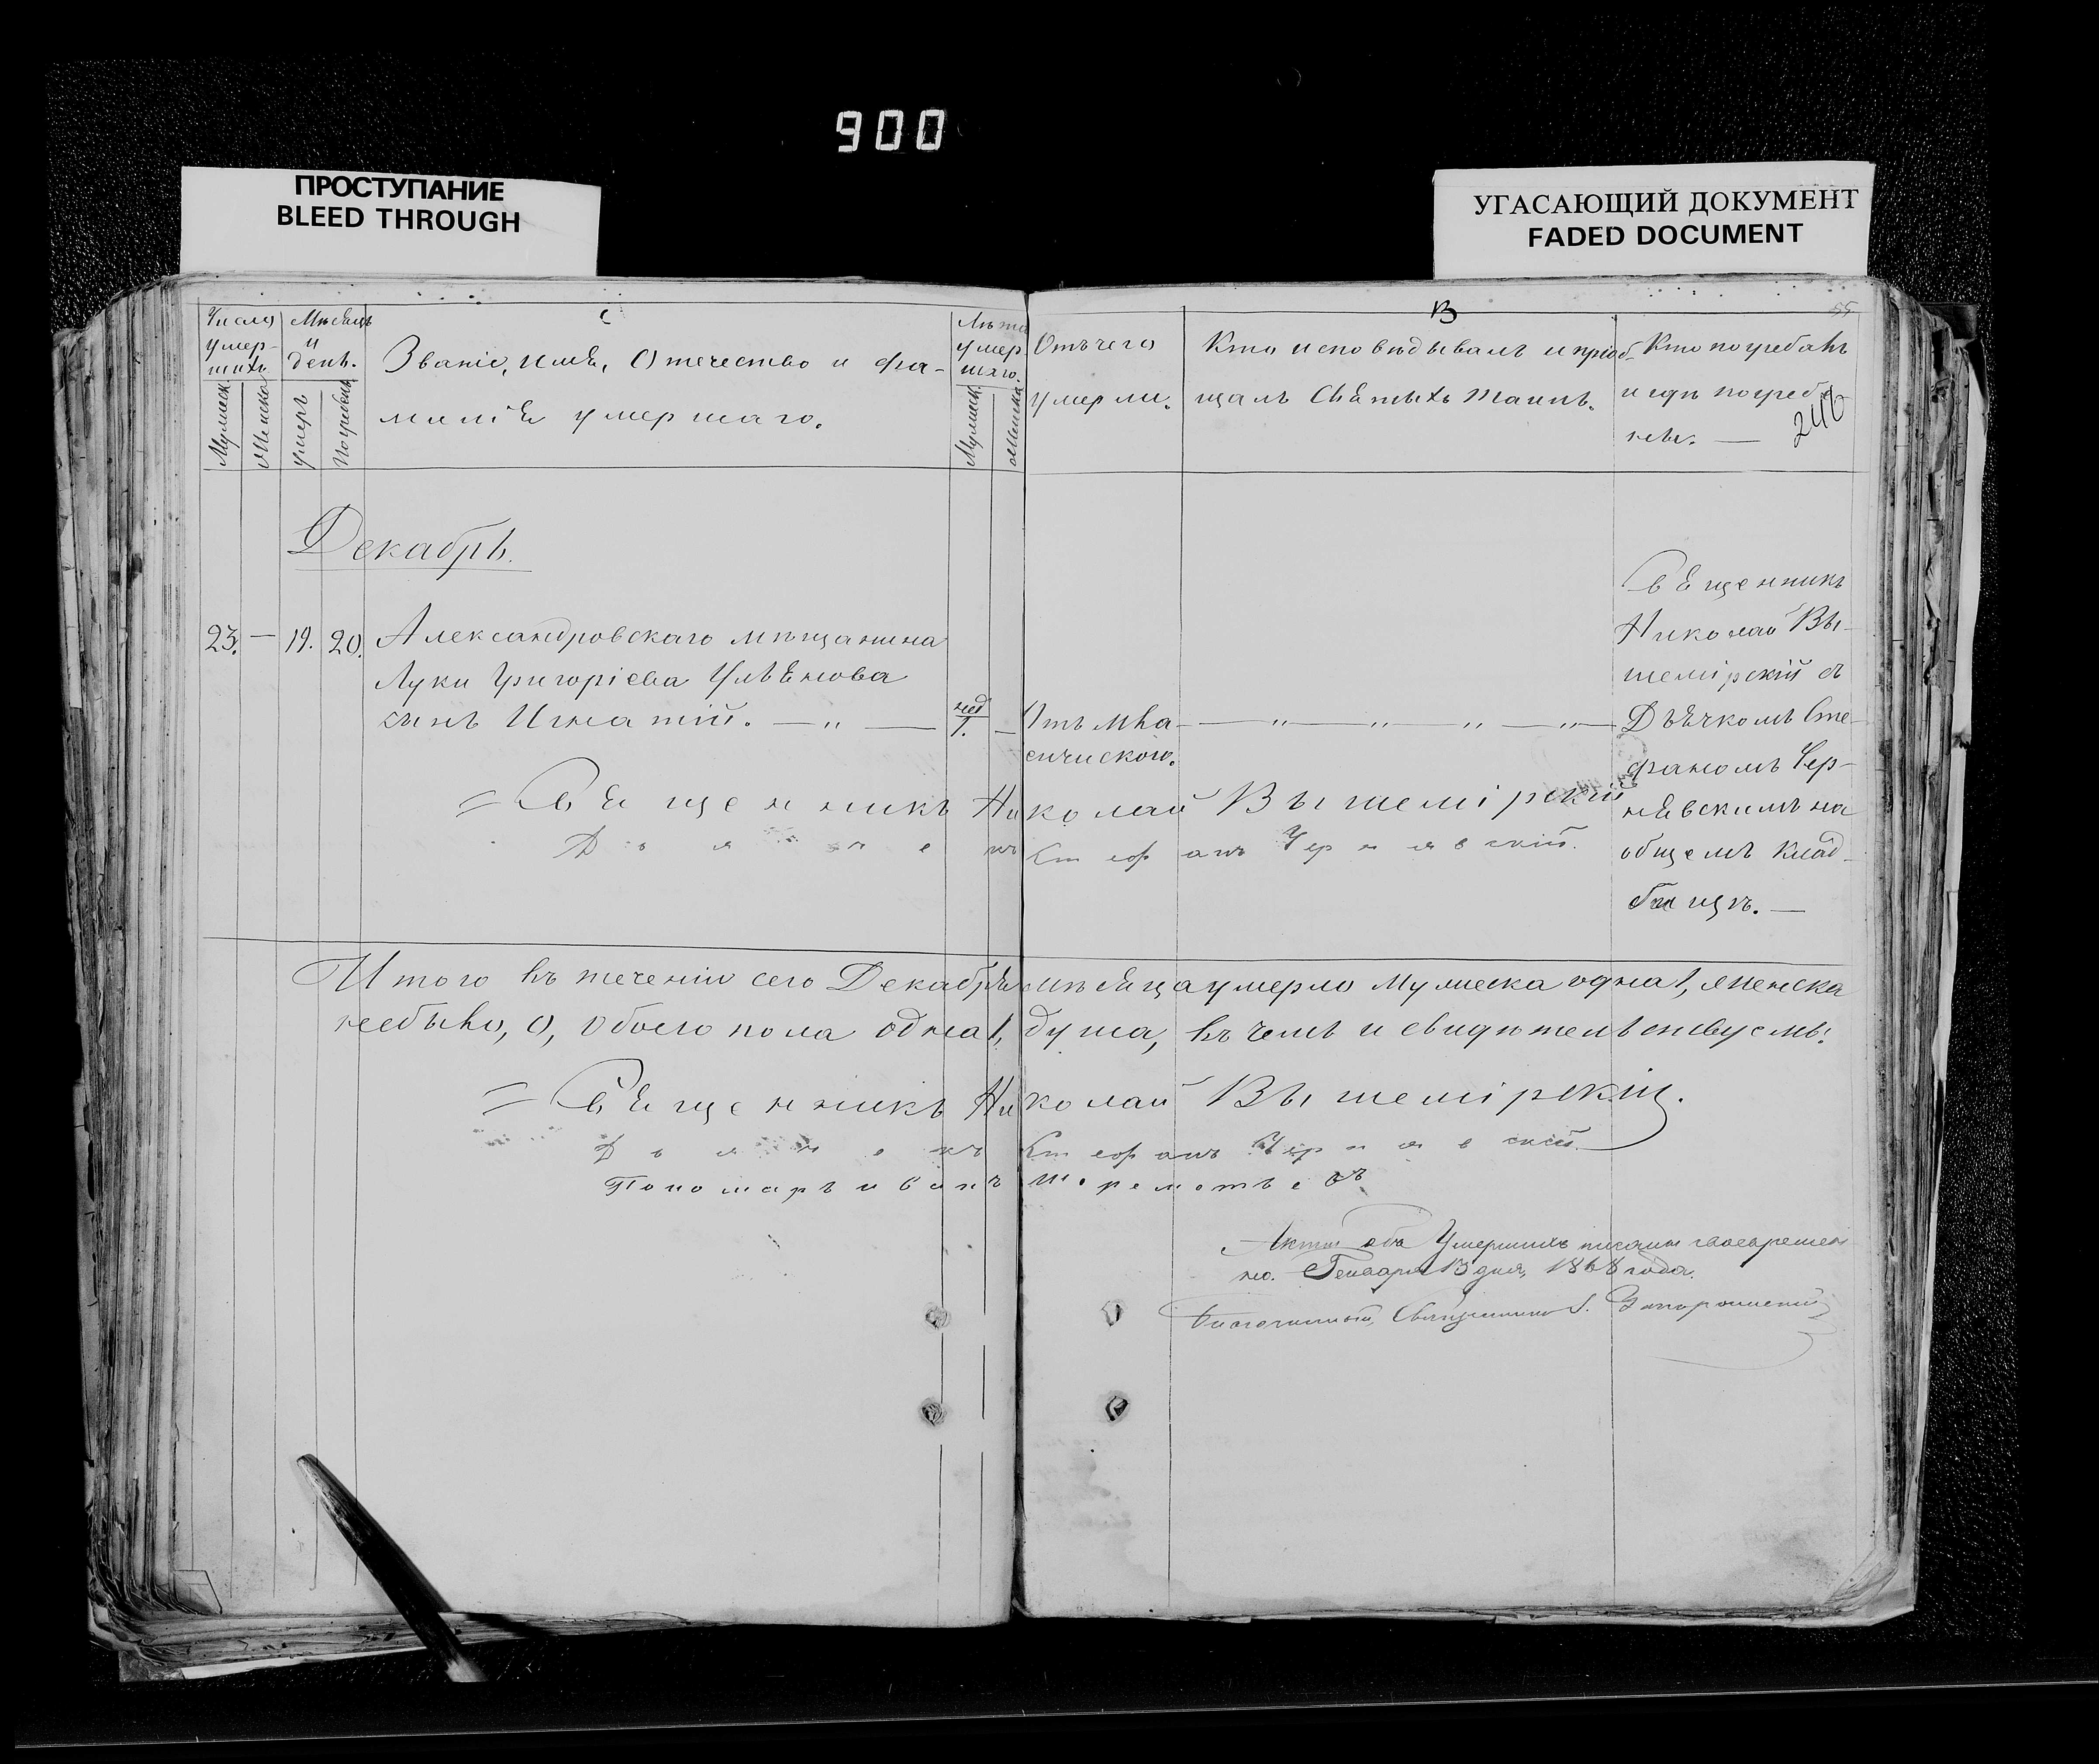 900
ПРОСТУПАНИЕ
BLEED THROUGH
УГАСАЮЩИЙ ДОКУМЕНТ
FADED DOCUMENT
Число умер-шихъ
Мужеск.
Женска
Мѣсяцъ и день.
Умеръ
Погребенъ
Званіе, имя, Отечество и фа-
милія умершаго.
Лѣта умер-шаго.
Мужеск.
Женска
Отъ чего
умерли.
Кто исповѣдывалъ и пріоб-
щалъ Святыхъ таинъ.
Кто погребалъ
и гдѣ погребе-
ны. —
55
240
Декабрь.
23. — 19. 20. Александровскаго мѣщанина
Луки Григоріева
сынъ Игнатій. — „ —
нед
1. —
Отъ
— „ — „ — „ — „ —
Священникъ
Николай Вы-
шемірскій съ
Дьячкомъ Сте-
фаномъ Чер-
нявскимъ на
общемъ клад-
бищѣ. —
= Священникъ Николай Вышемірскій
Дьячекъ Стефанъ Чернявскій.
Итого въ теченіи сего Декабря мѣсяца умерло Мужеска одна 1, женска
небыло, 0, Обоего пола одна 1, душа, въ чемъ и свидѣтельствуемъ:
= Священникъ Николай Вышемірскій.
Дьячекъ Стефанъ Чернявскій.
Пономарь Иванъ Шереметьевъ
Акты объ Умершихъ писаны своевремен
но. Генваря 13 дня, 1868 года.
Благочинный, Священникъ